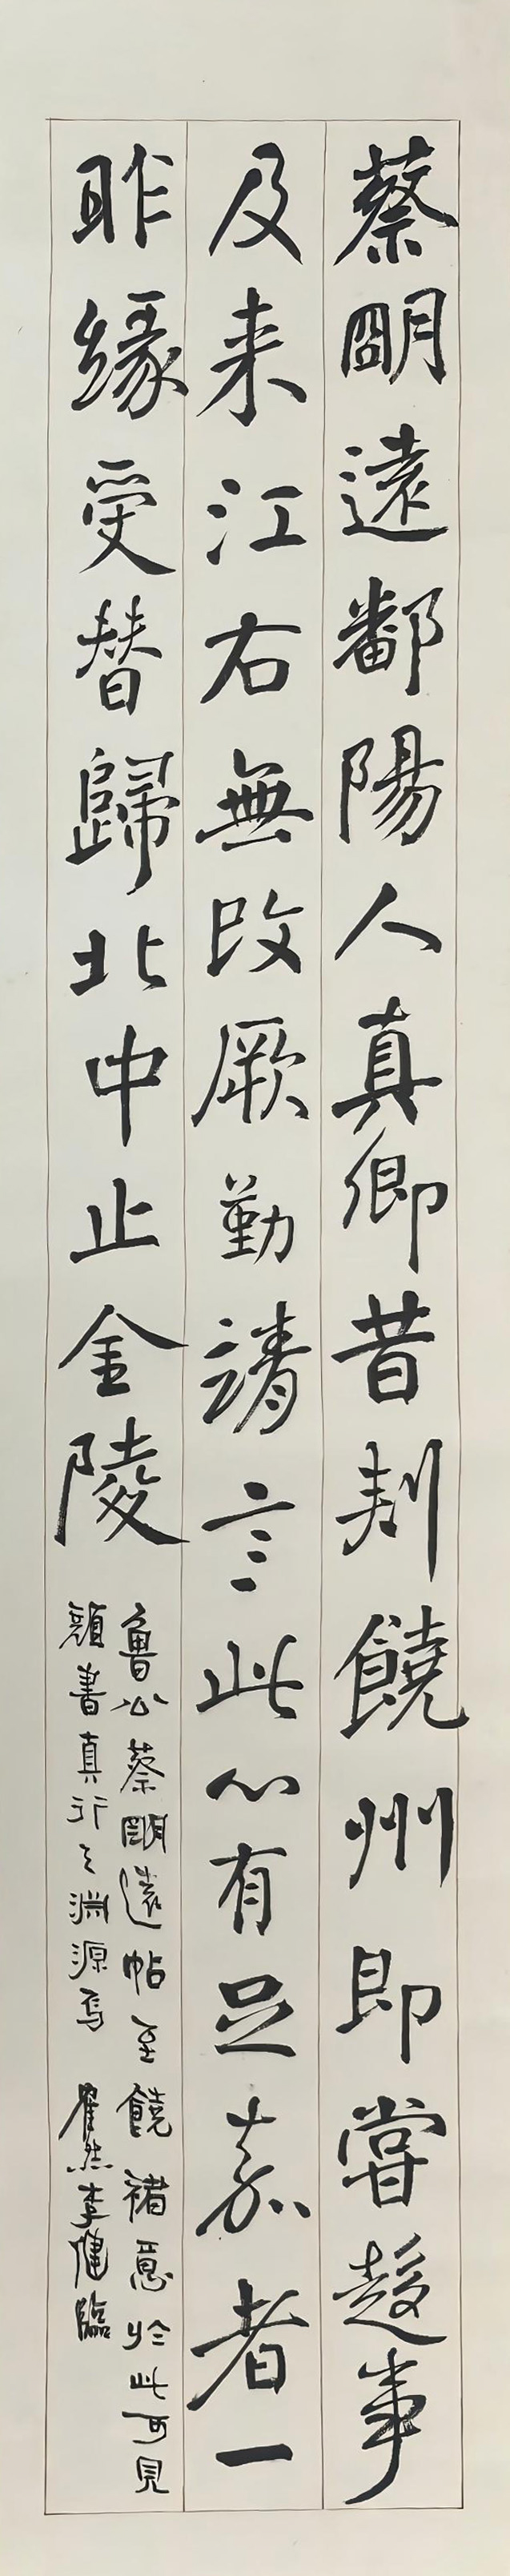 蔡明遠鄱陽人真卿昔刺饒州即嘗趍事
及来江右無改厥勤靖言此心有足嘉者一
昨緣受替歸北中止金陵
魯公蔡明遠帖至饒褚意於此可見
顏書真行之淵源焉 李健臨